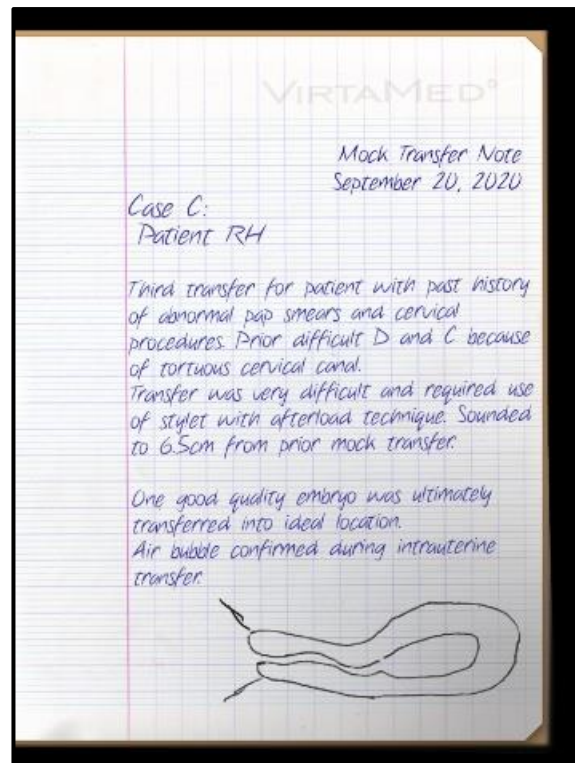 VIRTAMED®
Mock Transfer Note
September 20, 2020
Case C:
Patient RH
Third transfer for patient with past history
of abnormal pap smears and cervical
procedures. Prior difficult D and C because
of tortuous cervical canal.
Transfer was very difficult and required use
of stylet with afterload technique. Sounded
to 6.5cm from prior mock transfer.
One good quality embryo was ultimately
transferred into ideal location.
Air bubble confirmed during intrauterine
transfer.